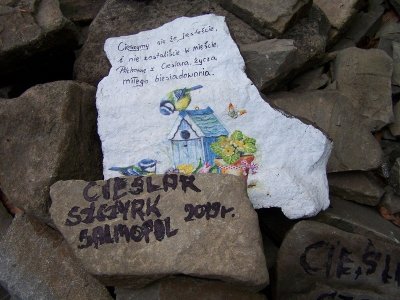 Cieszymy się że jesteście,
i nie zostaliście w mieście.
Pochmurne z Cieślara, życzą
miłego biesiadowania.
CIEŚLAR
SZCZYRK
SALMOPOL 2019r.
CIEŚL